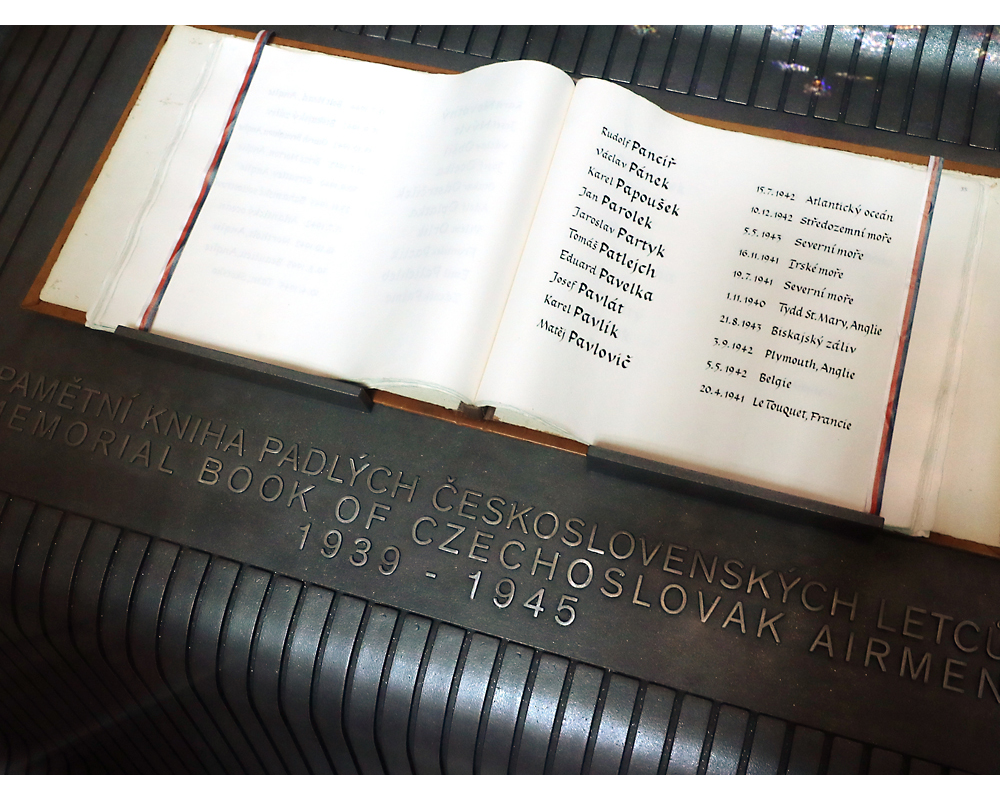 Rudolf Pancíř 15.7.1942 Atlantický oceán
Václav Pánek 10.12.1942 Středozemní moře
Karel Papoušek 5.5.1943 Severní moře
Jan Parolek 16.11.1941 Irské moře
Jaroslav Partyk 19.7.1941 Severní moře
Tomáš Patlejch 1.11.1940 Tydd St. Mary, Anglie
Eduard Pavelka 21.8.1943 Biskajský záliv
Josef Pavlát 3.9.1942 Plymouth, Anglie
Karel Pavlík 5.5.1942 Belgie
Matěj Pavlovič 20.4.1941 Le Touquet, Francie
PAMĚTNÍ KNIHA PADLÝCH ČESKOSLOVENSKÝCH LETCŮ
MEMORIAL BOOK OF CZECHOSLOVAK AIRMEN
1939 - 1945